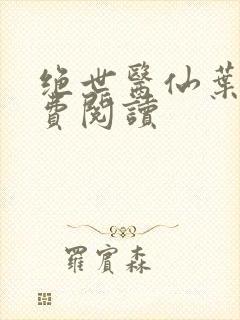 绝世醫仙葉
費閱讀
羅賓森